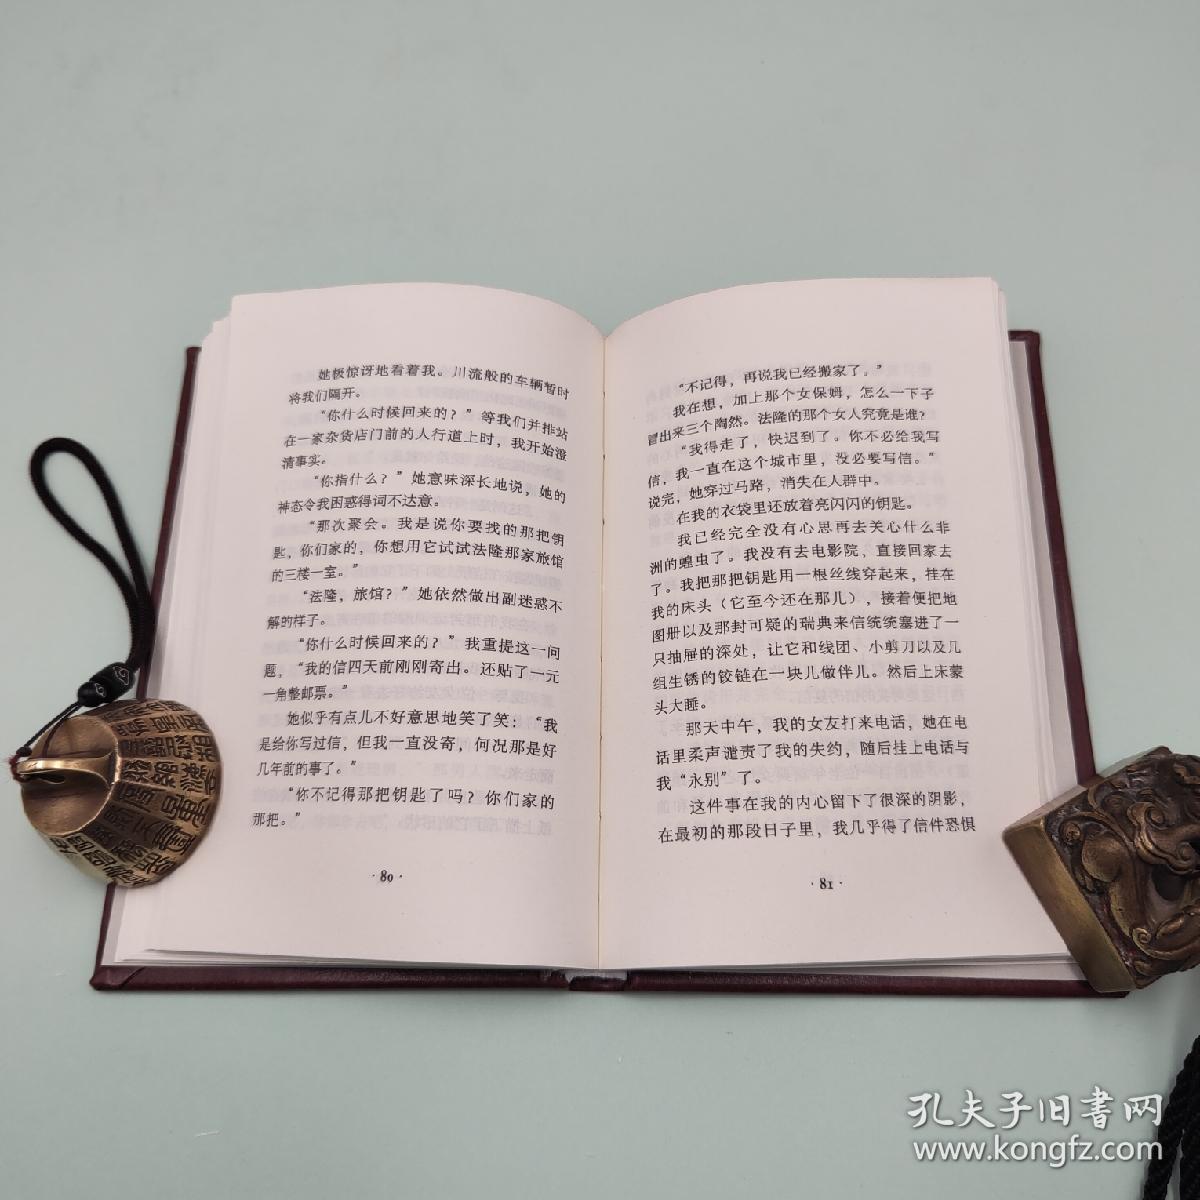 她极惊讶地看着我。川流般的车辆暂时
将我们隔开。
“你什么时候回来的？”等我们并排站
在一家杂货店门前的人行道上时，我开始澄
清事实。
“你指什么？”她意味深长地说，她的
神态令我困惑得词不达意。
“那次聚会。我是说你要找的那把钥
匙，你们家的，你想用它试试法隆那家旅馆
的三楼一室。”
“法隆，旅馆？”她依然做出副迷惑不
解的样子。
“你什么时候回来的？”我重提这一问
题，“我的信四天前刚刚寄出。还贴了一元
一角整邮票。”
她似乎有点儿不好意思地笑了笑：“我
是给你写过信，但我一直没寄，何况那是好
几年前的事了。”
“你不记得那把钥匙了吗？你们家的
那把。”
·80·
“不记得，再说我已经搬家了。”
我在想，加上那个女保姆，怎么一下子
冒出来三个陶然。法隆的那个女人究竟是谁？
“我得走了，快迟到了。你不必给我写
信，我一直在这个城市里，没必要写信。”
说完，她穿过马路，消失在人群中。
在我的衣袋里还放着亮闪闪的钥匙。
我已经完全没有心思再去关心什么非
洲的蝗虫了。我没有去电影院，直接回家去
了。我把那把钥匙用一根丝线穿起来，挂在
我的床头（它至今还在那儿），接着便把地
图册以及那封可疑的瑞典来信统统塞进了一
只抽屉的深处，让它和线团、小剪刀以及几
组生锈的铰链在一块儿做伴儿。然后上床蒙
头大睡。
那天中午，我的女友打来电话，她在电
话里柔声谴责了我的失约，随后挂上电话与
我“永别”了。
这件事在我的内心留下了很深的阴影，
在最初的那段日子里，我几乎得了信件恐惧
·81·
孔夫子旧书网
www.kongfz.com